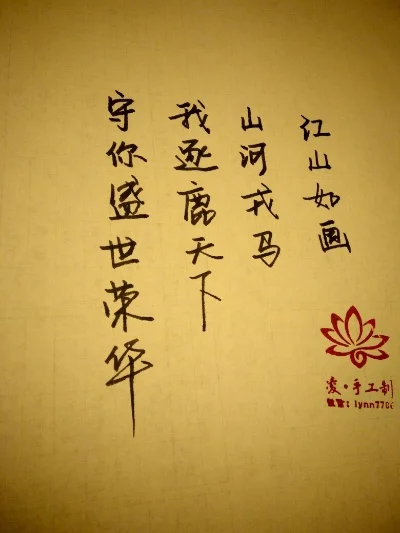 江山如画
山河戎马
我逐鹿天下
守你盛世荣华
凌·手工制
微信：lynn770